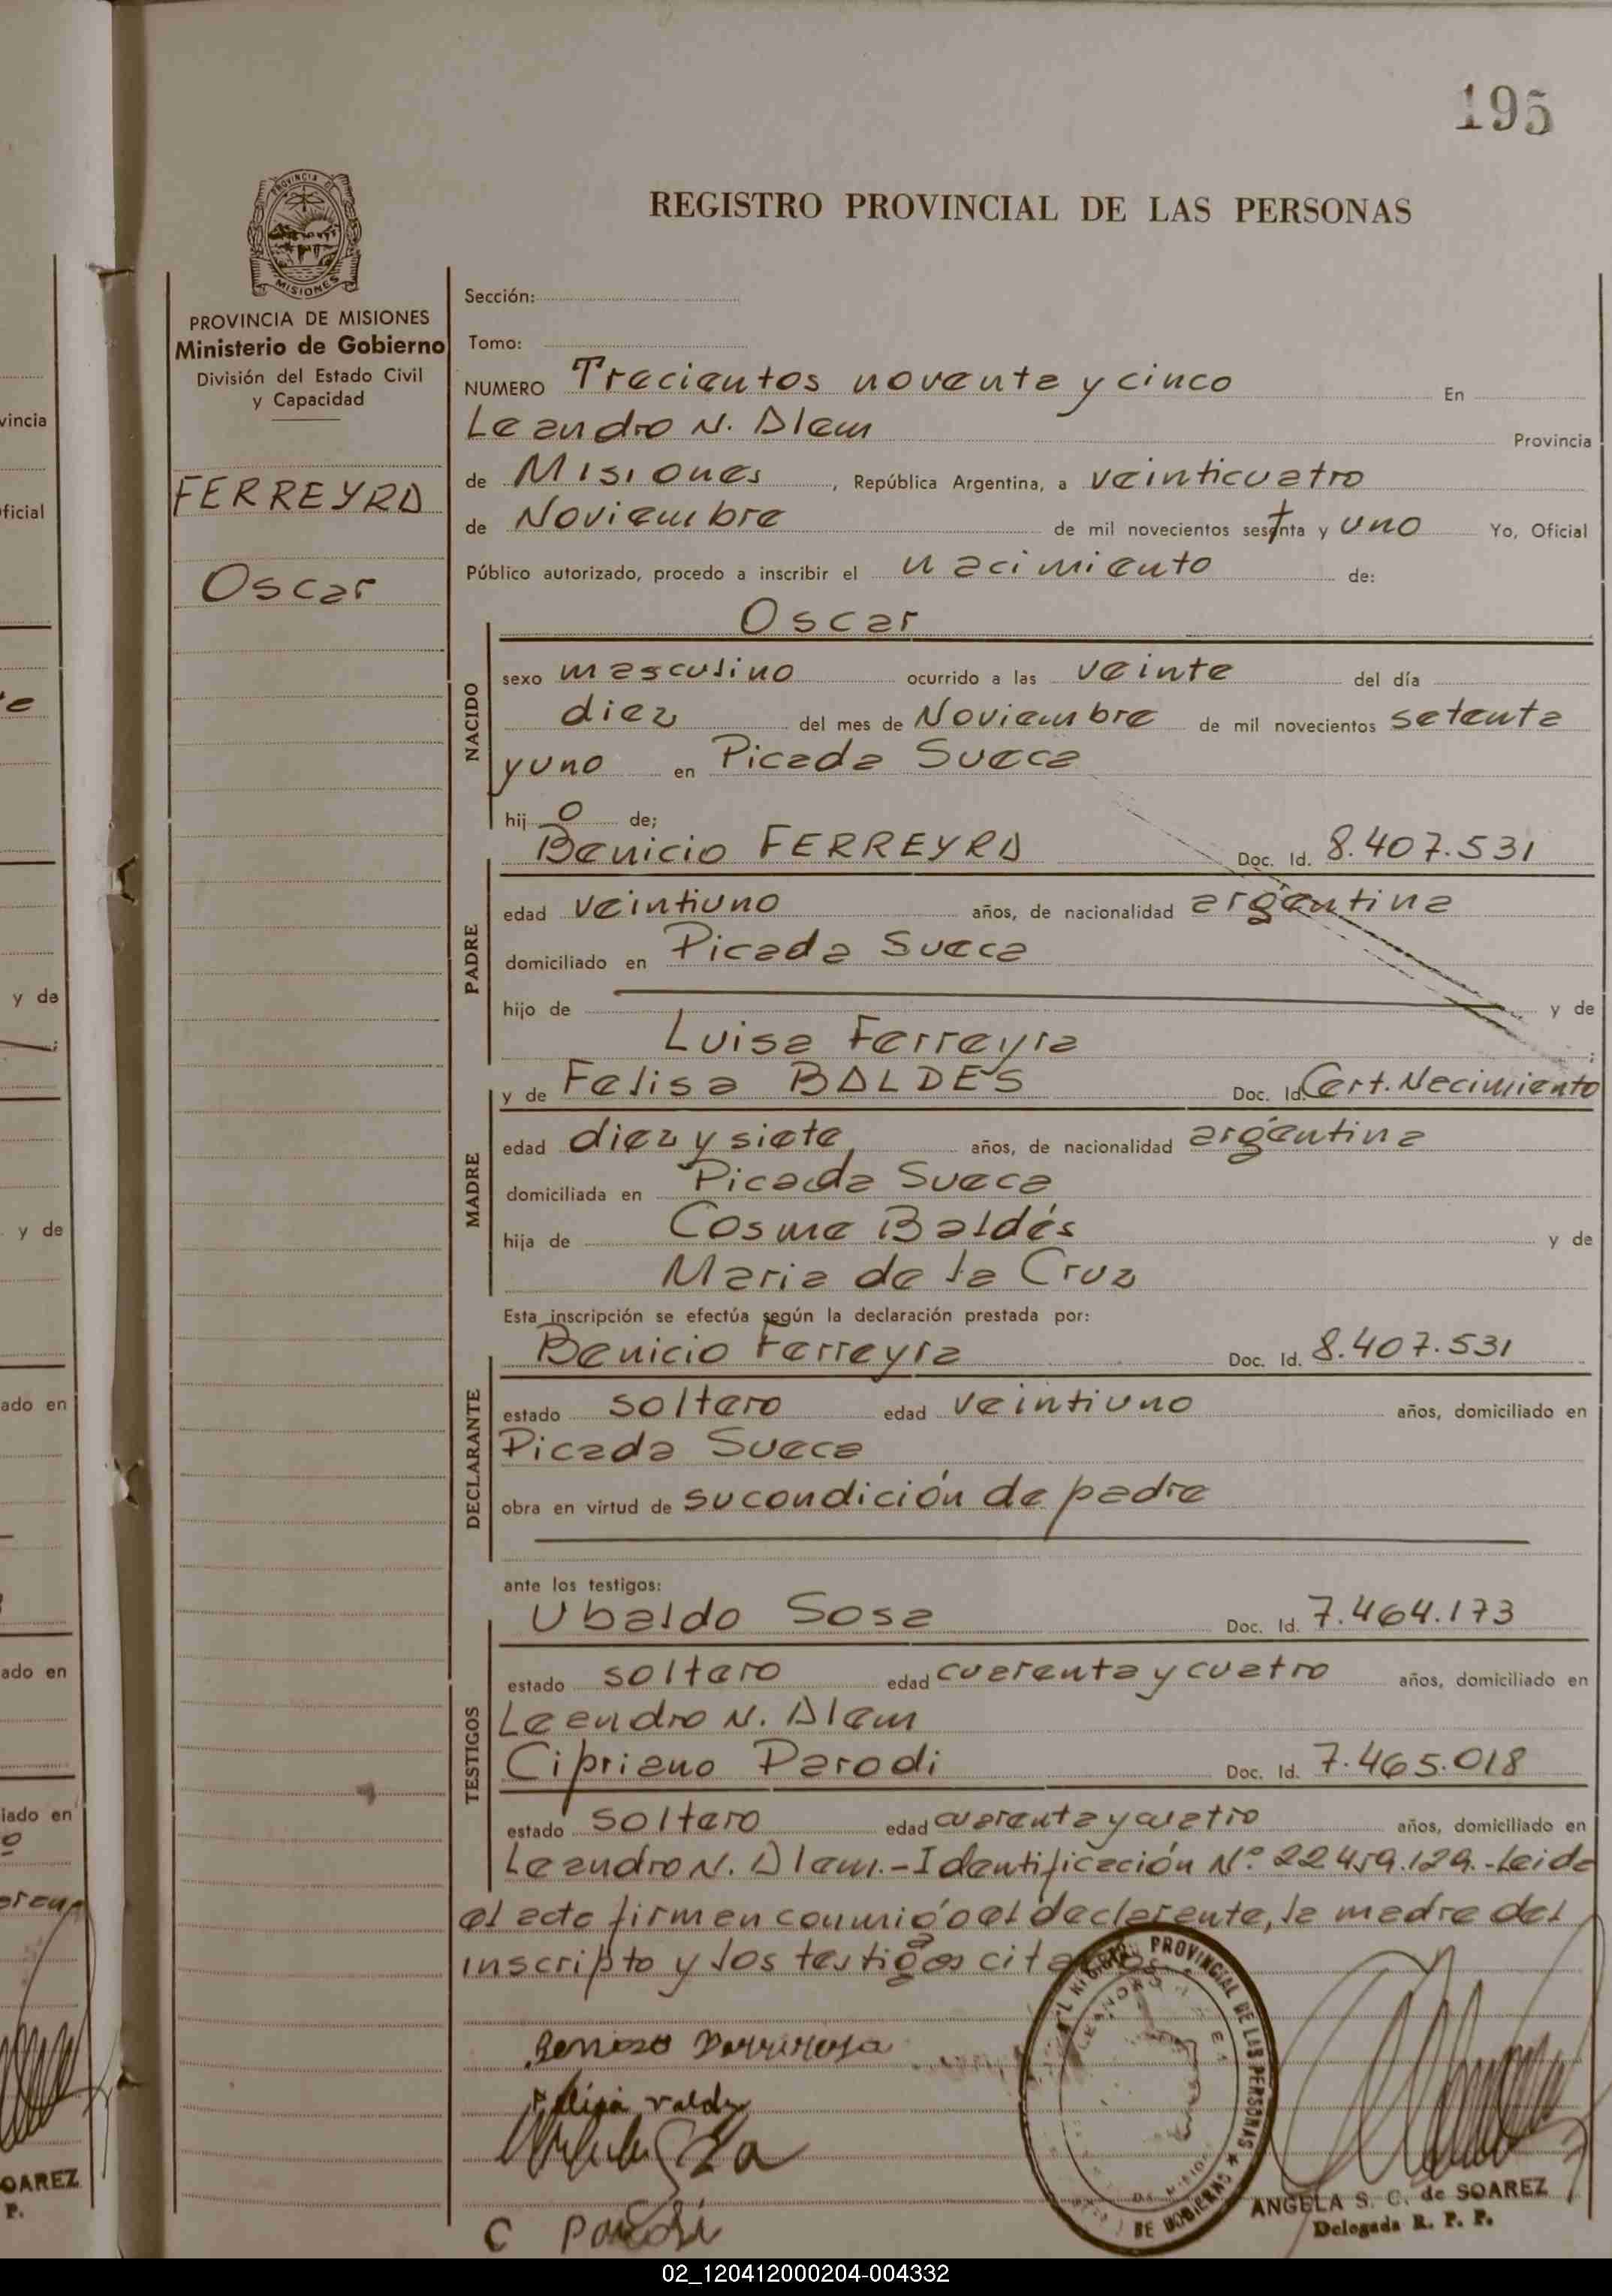 195
REGISTRO PROVINCIAL DE LAS PERSONAS
PROVINCIA DE
MISIONES
PROVINCIA DE MISIONES
Ministerio de Gobierno
División del Estado Civil
y Capacidad
FERREYRA
Oscar
Sección:
Tomo:
NUMERO Trecientos noventa y cinco En
Leandro N. Alem Provincia
de Misiones, República Argentina, a veinticuatro
de Noviembre de mil novecientos setenta y uno Yo, Oficial
Público autorizado, procedo a inscribir el nacimiento de:
Oscar
NACIDO
sexo masculino ocurrido a las veinte del día
diez del mes de Noviembre de mil novecientos setenta
y uno en Picada Sueca
hijo de;
PADRE
Benicio FERREYRA Doc. Id. 8.407.531
edad veintiuno años, de nacionalidad argentina
domiciliado en Picada Sueca
hijo de y de
Luisa Ferreyra ;
MADRE
y de Felisa BALDES Doc. Id. Cert. Nacimiento
edad diez y siete años, de nacionalidad argentina
domiciliada en Picada Sueca
hija de Cosme Baldés y de
Maria de la Cruz
Esta inscripción se efectúa según la declaración prestada por:
DECLARANTE
Benicio Ferreyra Doc. Id. 8.407.531
estado soltero edad veintiuno años, domiciliado en
Picada Sueca
obra en virtud de su condición de padre
ante los testigos:
TESTIGOS
Ubaldo Sosa Doc. Id. 7.464.173
estado soltero edad cuarenta y cuatro años, domiciliado en
Leandro N. Alem
Cipriano Parodi Doc. Id. 7.465.018
estado soltero edad cuarenta y cuatro años, domiciliado en
Leandro N. Alem.-Identificación Nº 22.459.129.-Leida
el acta firman conmigo el declarante, la madre del
inscripto y los testigos citados
PROVINCIAL DE LAS PERSONAS
DE GOBIERNO
C Parodi
ANGELA S. C. de SOAREZ
Delegada R. P. P.
vincia
oficial
y de
y de
ado en
ado en
iado en
OAREZ
P.
02_120412000204-004332